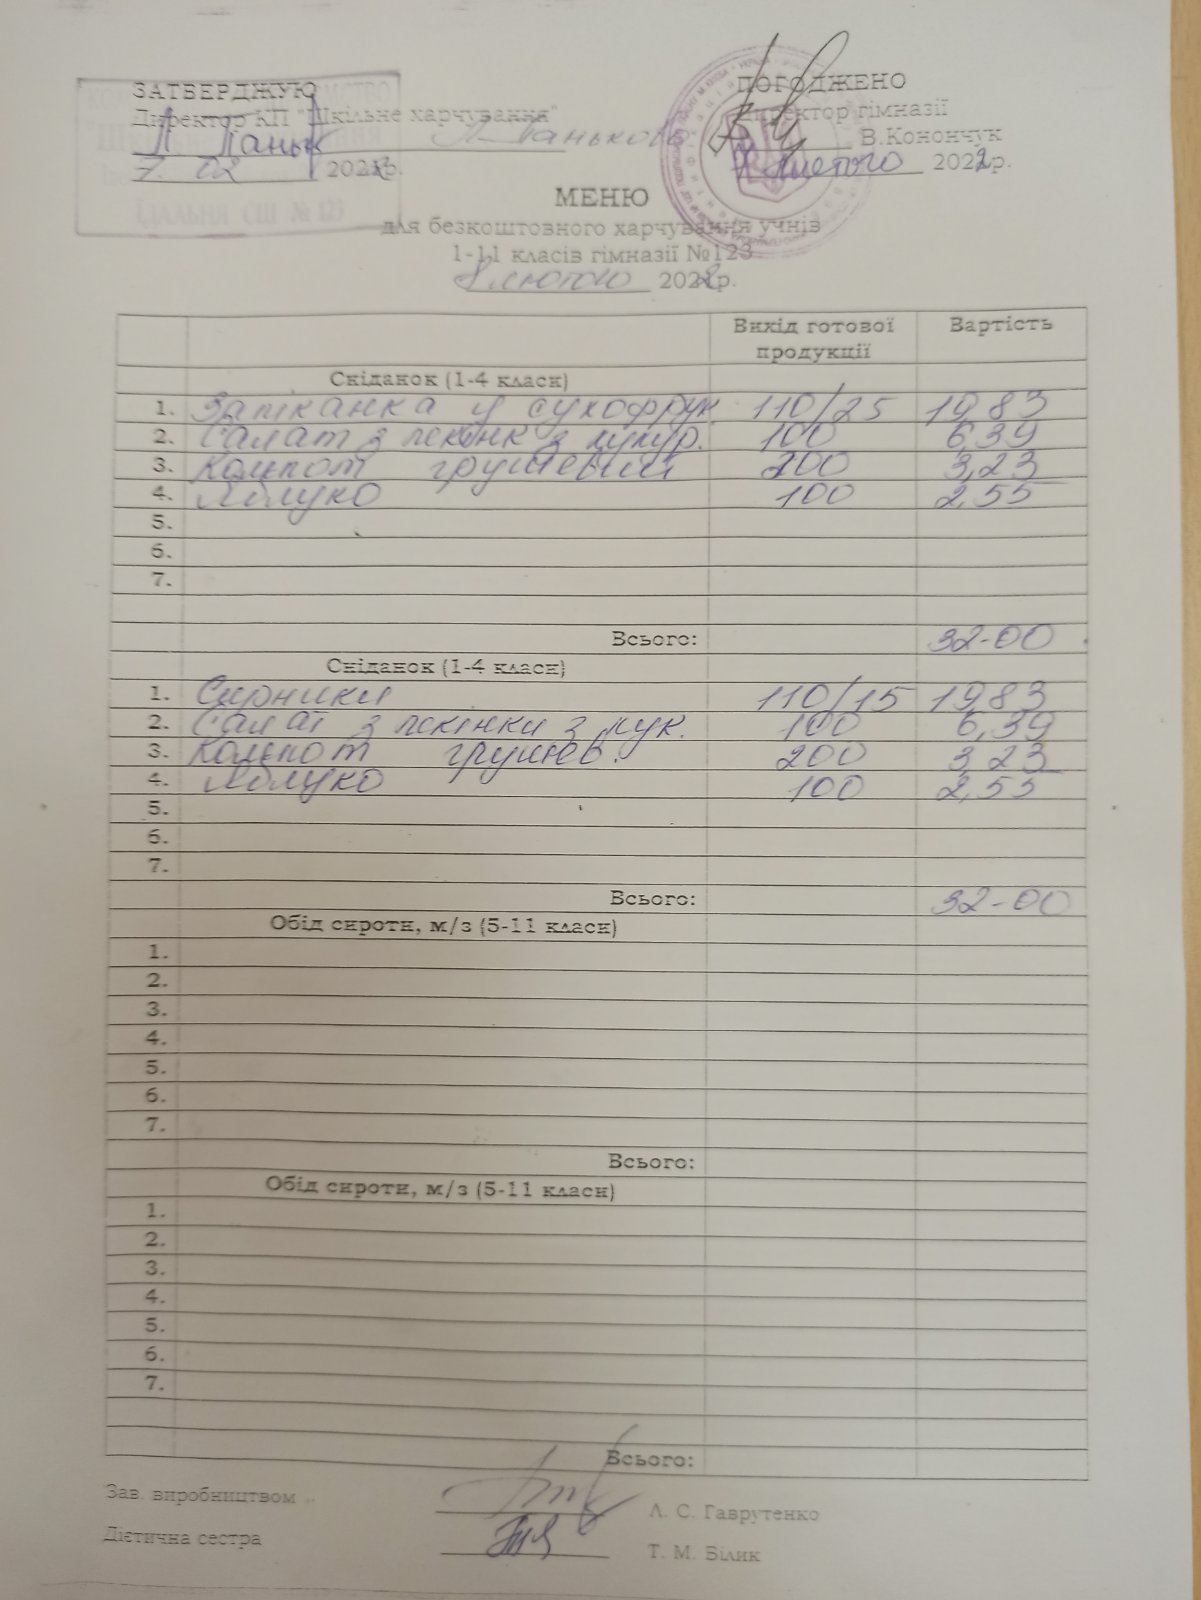 ЗАТВЕРДЖУЮ
Директор КП "Шкільне харчування"
7. 02 2022р.
ЇДАЛЬНЯ СШ № 123
ПОГОДЖЕНО
Директор гімназії
В.Конончук
лютого 2022р.
МЕНЮ
для безкоштовного харчування учнів
1-11 класів гімназії №123
8 лютого 2022р.
Вихід готової продукції Вартість
Сніданок (1-4 класи)
1. Запіканка у сухофрук. 110/25 19,83
2. Салат з пекінк з кукур. 100 6,39
3. Компот грушевий 200 3,23
4. Яблуко 100 2,55
5.
6.
7.
Всього: 32-00
Сніданок (1-4 класи)
1. Сирники 110/15 19,83
2. Салат з пекінки з кук. 100 6,39
3. Компот грушев. 200 3,23
4. Яблуко 100 2,55
5.
6.
7.
Всього: 32-00
Обід сироти, м/з (5-11 класи)
1.
2.
3.
4.
5.
6.
7.
Всього:
Обід сироти, м/з (5-11 класи)
1.
2.
3.
4.
5.
6.
7.
Всього:
Зав. виробництвом Л. С. Гаврутенко
Дієтична сестра Т. М. Білик